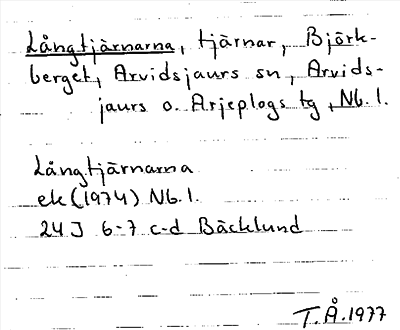 Långtjärnarna, tjärnar, Björk-
berget, Arvidsjaurs sn, Arvids-
jaurs o. Arjeplogs tg, Nb. l.
Långtjärnarna
ek (1974) Nb. l.
24J 6-7 c-d Bäcklund
T.Å. 1977